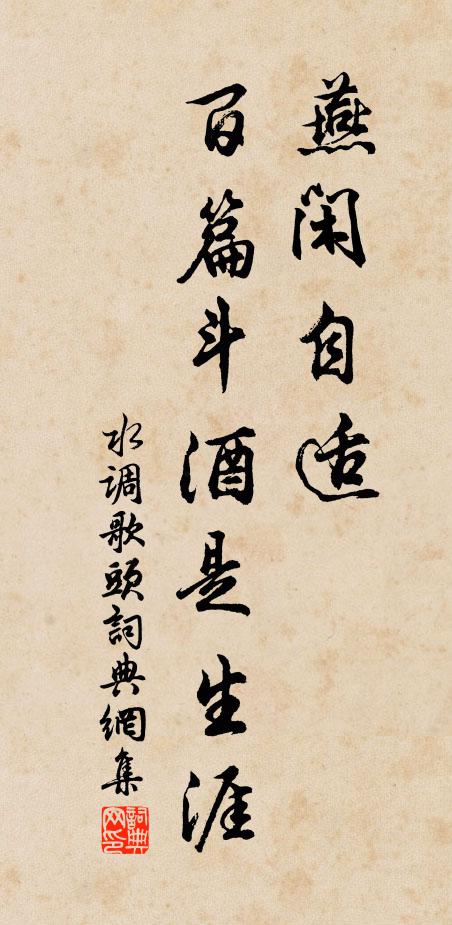 燕閑自适
百篇斗酒是生涯
水调歌頭詞典網集
詞典网印